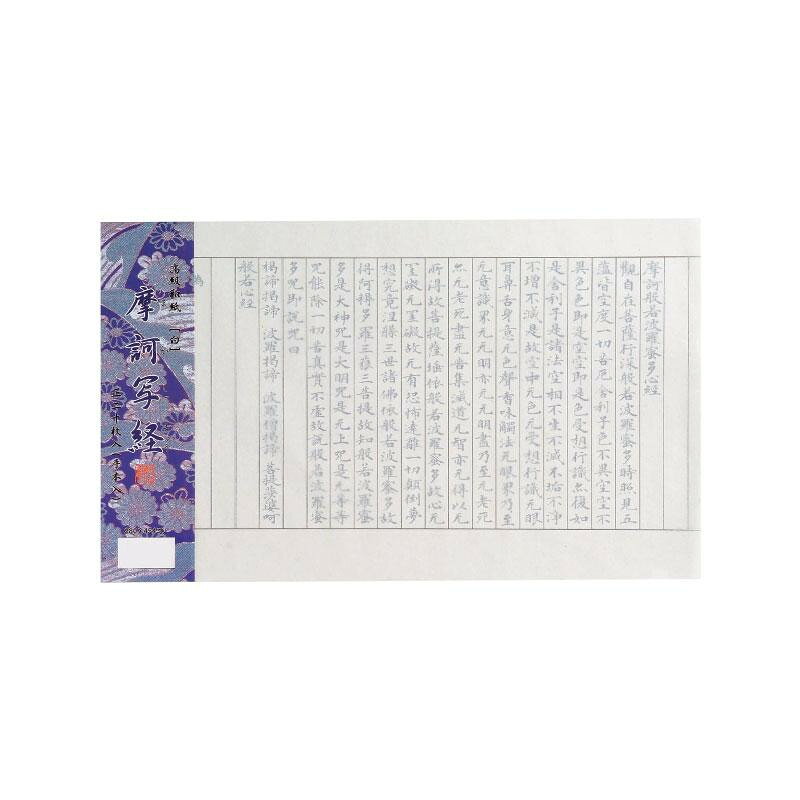 摩訶般若波羅蜜多心経
觀自在菩薩行深般若波羅蜜多時照見五
蘊皆空度一切苦厄舎利子色不異空空不
異色色即是空空即是色受想行識亦復如
是舎利子是諸法空相不生不滅不垢不浄
不増不減是故空中无色无受想行識无眼
耳鼻舌身意无色聲香味觸法无眼界乃至
无意識界无无明亦无无明盡乃至无老死
亦无老死盡无苦集滅道无智亦无得以无
所得故菩提薩埵依般若波羅蜜多故心无
罣礙无罣礙故无有恐怖遠離一切顛倒夢
想究竟涅槃三世諸佛依般若波羅蜜多故
得阿耨多羅三藐三菩提故知般若波羅蜜
多是大神咒是大明咒是无上咒是无等等
咒能除一切苦真實不虚故説般若波羅蜜
多咒即説咒曰
揭諦揭諦 波羅揭諦 波羅僧揭諦 菩提莎婆呵
般若心経
為
高級和紙 [白]
摩訶写経